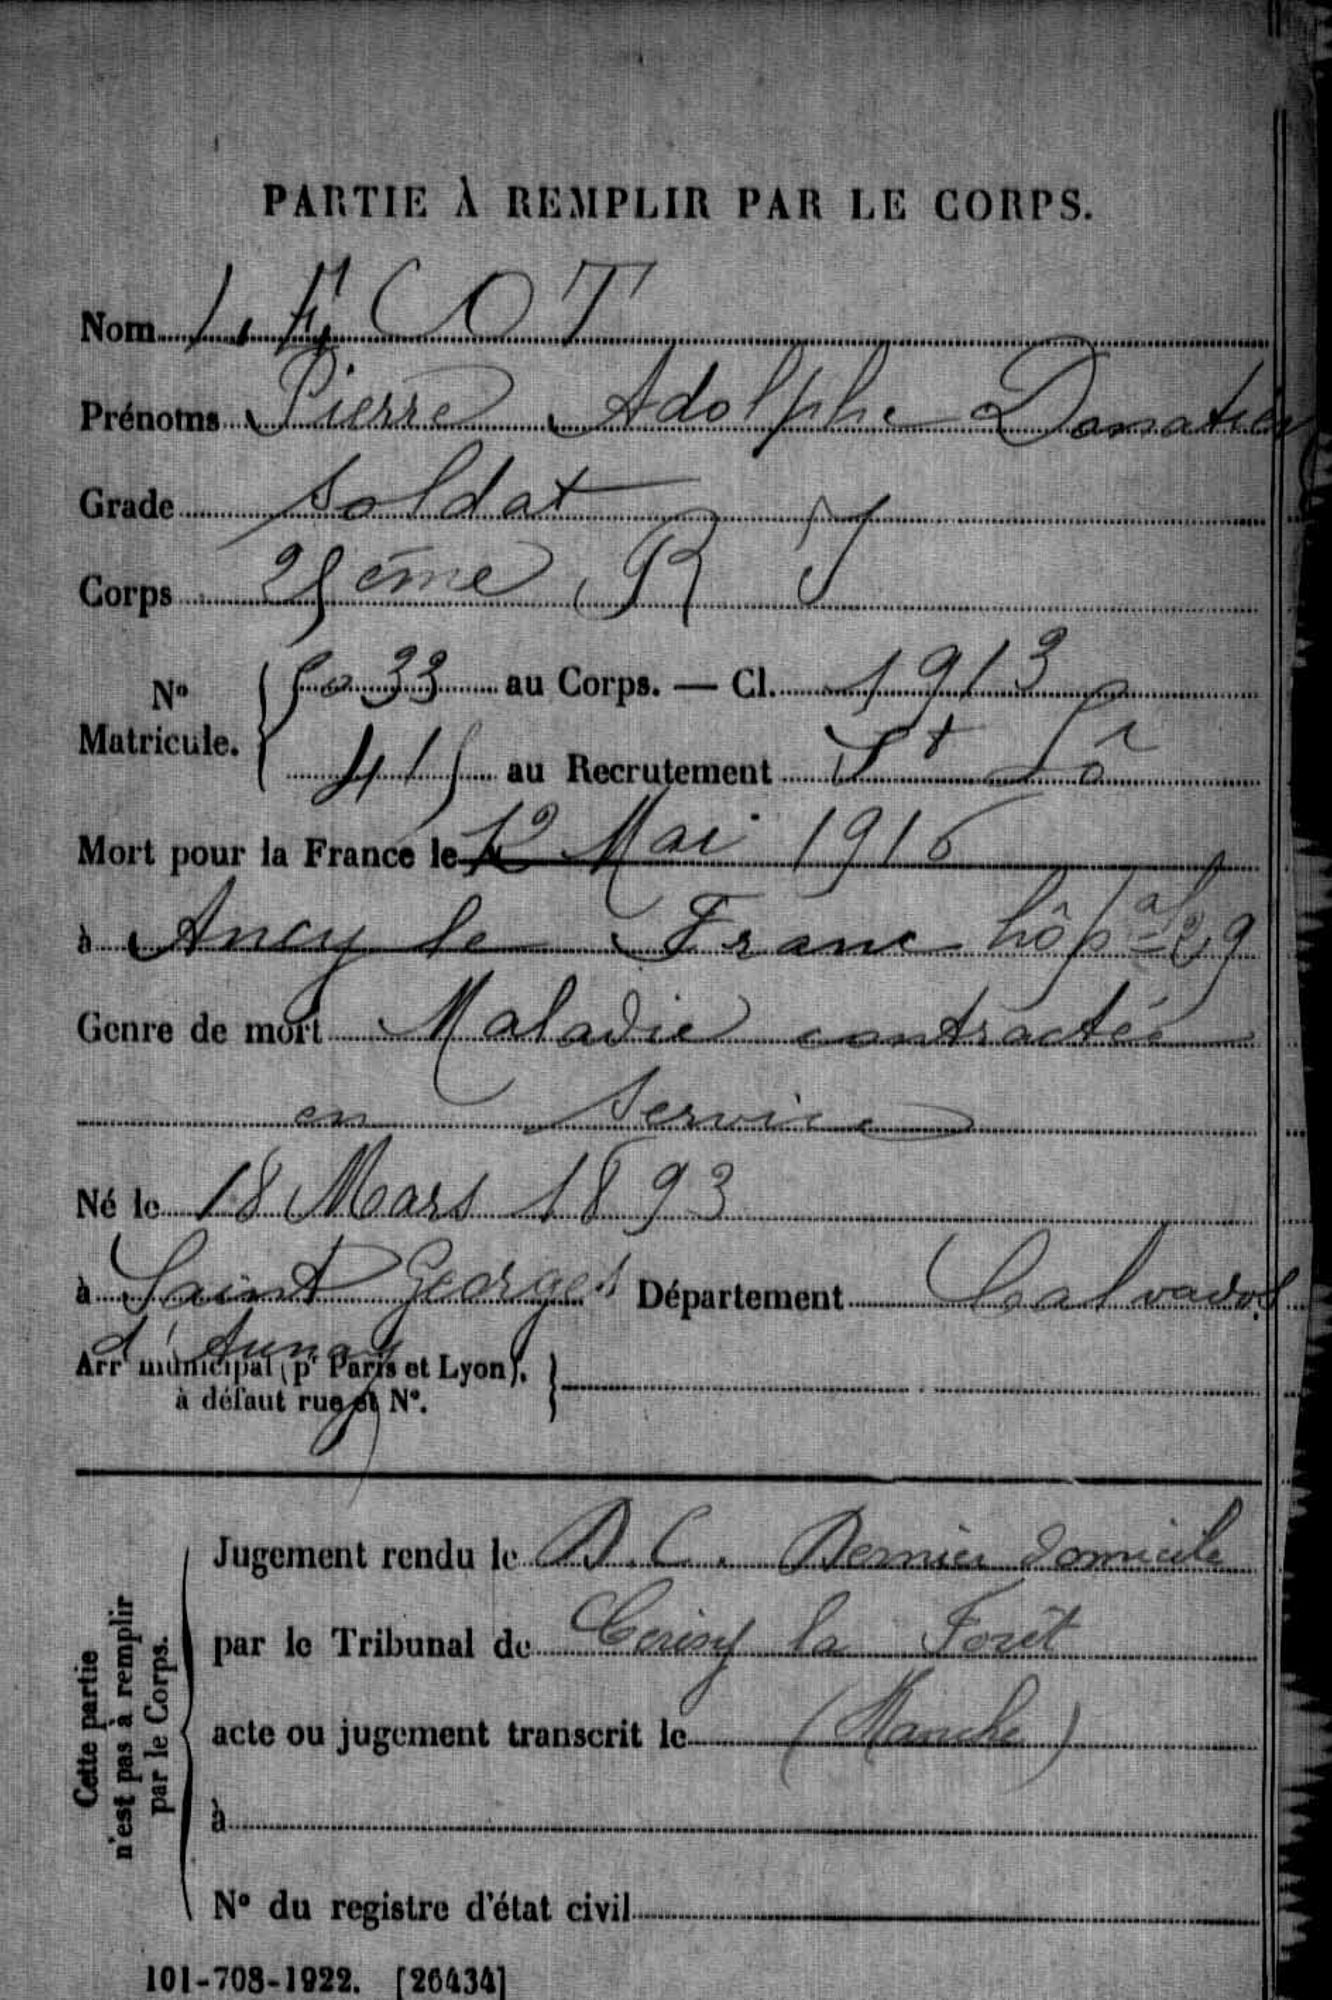 PARTIE À REMPLIR PAR LE CORPS.
Nom LECOT
Prénoms Pierre Adolphe Donatien
Grade soldat
Corps 25ème R I
N° Matricule. 5033 au Corps. — Cl. 1913
415 au Recrutement St Lô
Mort pour la France le 12 Mai 1916
à Ancy le Franc hôpal 29
Genre de mort Maladie contractée
en service
Né le 18 Mars 1893
à Saint Georges Département Calvados
d'Aunay
Arrt municipal (pr Paris et Lyon),
à défaut rue et N°.
Cette partie n'est pas à remplir par le Corps.
Jugement rendu le D.C. Dernier domicile
par le Tribunal de Cerisy la Forêt
acte ou jugement transcrit le (Manche)
à
N° du registre d'état civil
101-708-1922. [26434]